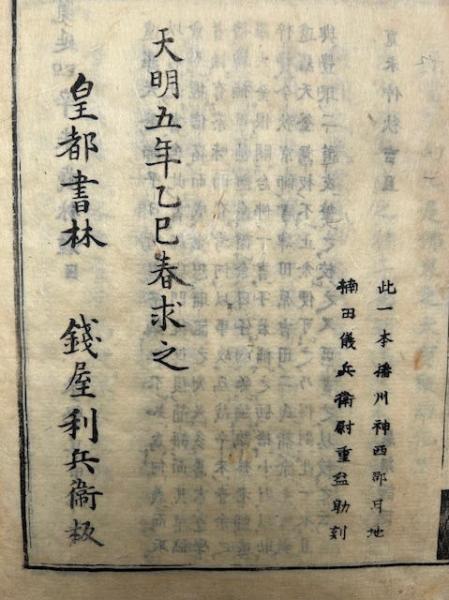 此一本播川神西郡月地
楠田儀兵衛尉重益助刻
天明五年乙巳春求之
皇都書林 錢屋利兵衞板